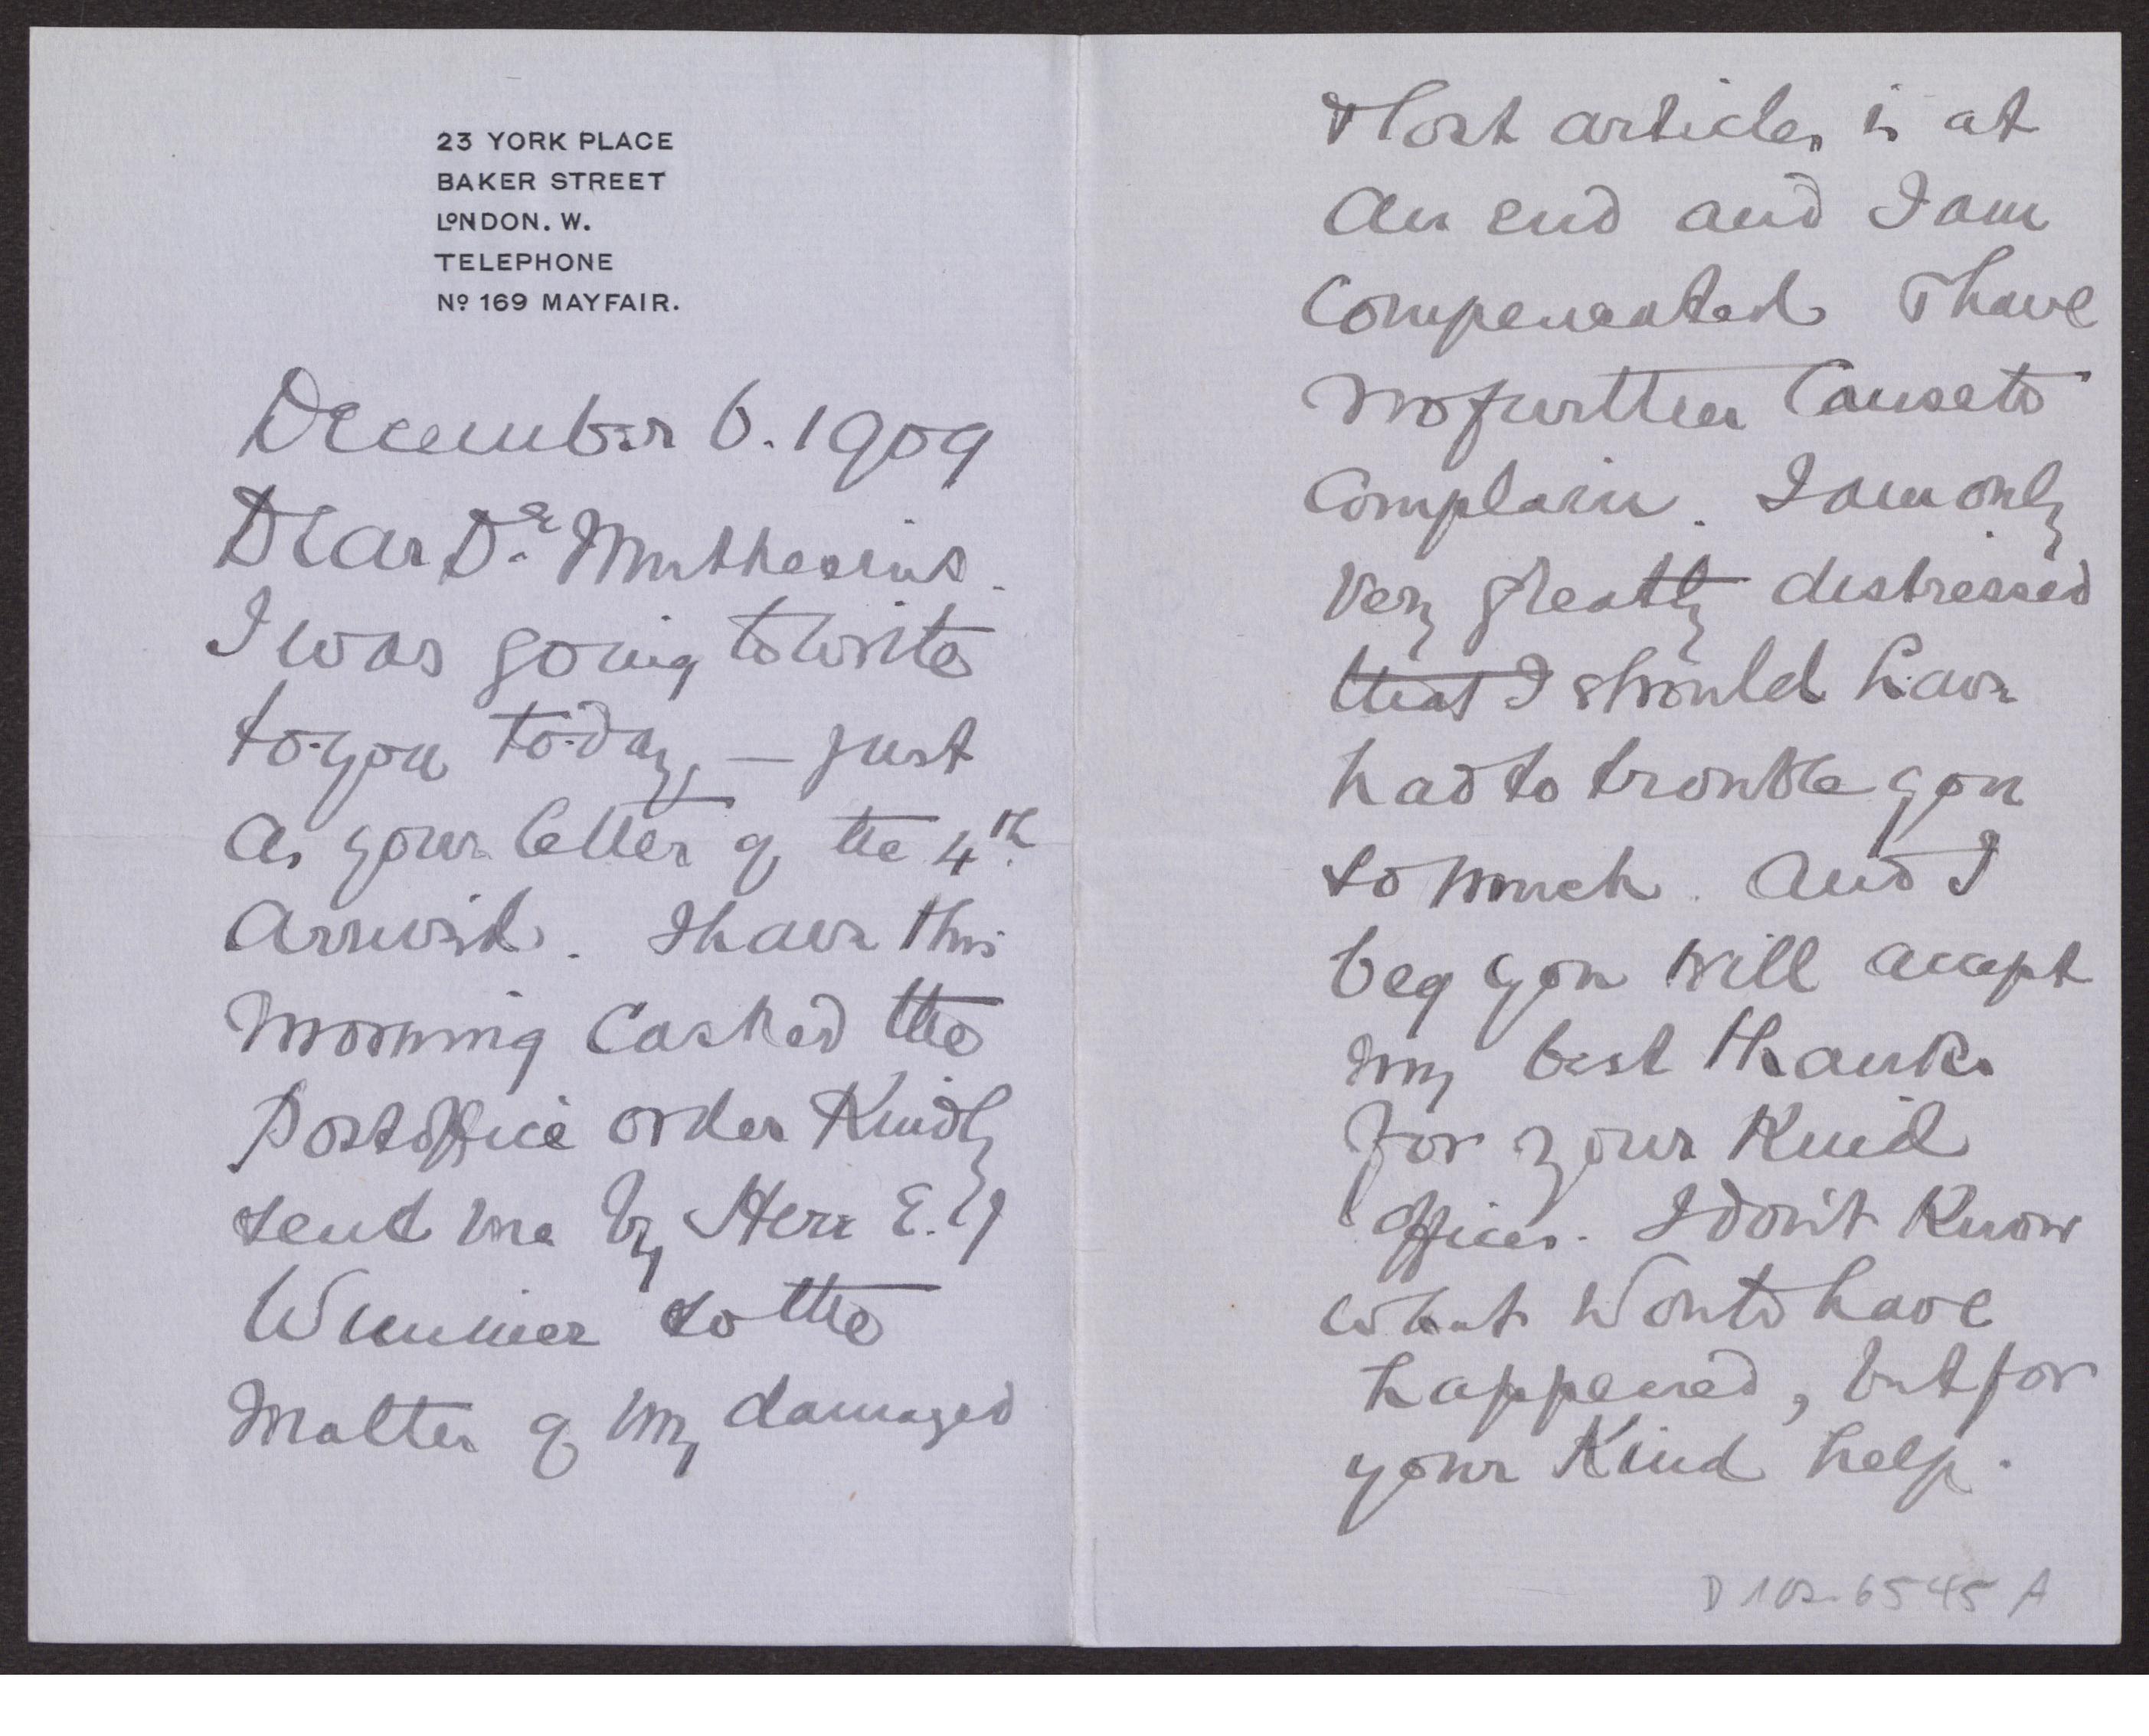 23 YORK PLACE
BAKER STREET
LONDON. W.
TELEPHONE
Nº 169 MAYFAIR.
December 6. 1909
Dear Dr. Muthesius.
I was going to write
to you to-day, — just
as your letter of the 4th.
arrived. I have this
morning cashed the
Post office order Kindly
send me by Herr E.
so the
matter of my damaged
& lost articles is at
an end and I am
compensated I have
no further cause to
complain. I am only
very greatly distressed
that I should have
had to trouble you
so much. And I
beg you will accept
my best thanks
for your Kind
offices. I don't Know
what would have
happened, but for
your Kind help.
D 102-6545 A